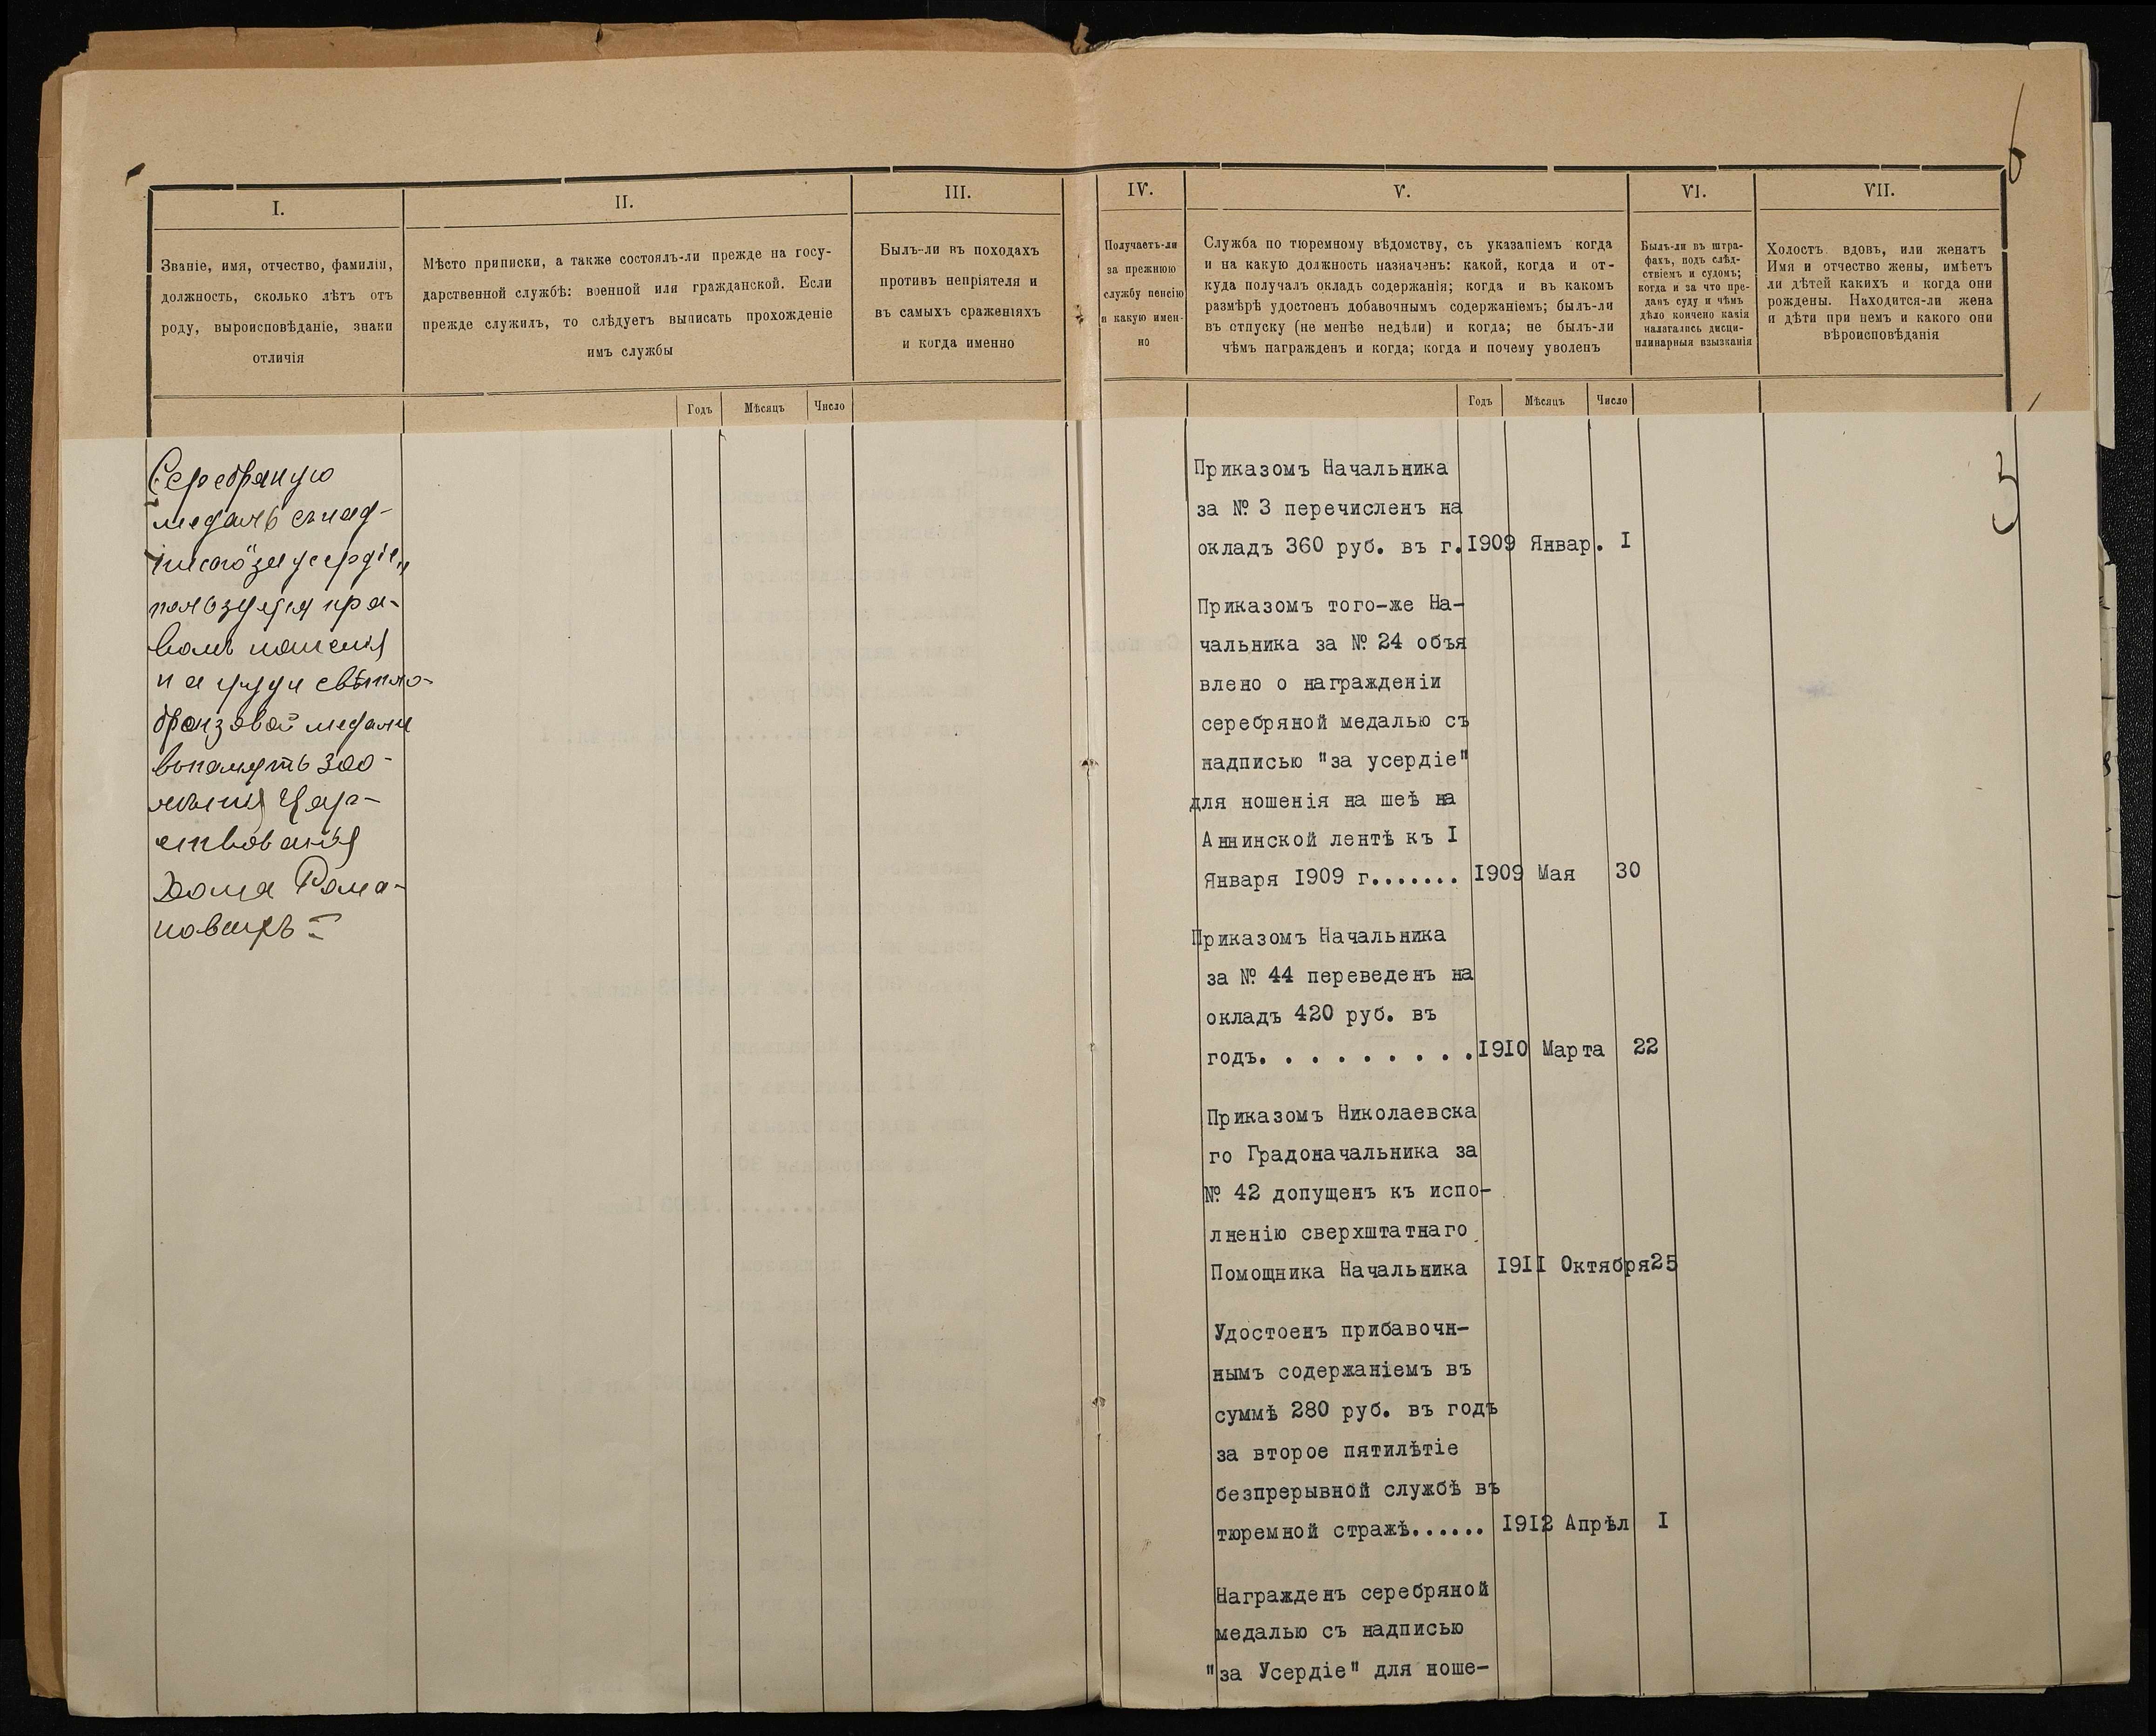 6
I.
Званіе, имя, отчество, фамилія,
должность, сколько лѣтъ отъ
роду, вѣроисповѣданіе, знаки
отличія
II.
Мѣсто приписки, а также состоялъ-ли прежде на госу-
дарственной службѣ: военной или гражданской. Если
прежде служилъ, то слѣдуетъ выписать прохожденіе
имъ службы
Годъ Мѣсяцъ Число
III.
Былъ-ли въ походахъ
противъ непріятеля и
въ самыхъ сраженіяхъ
и когда именно
IV.
Получаетъ-ли
за прежнюю
службу пенсію
и какую имен-
но
V.
Служба по тюремному вѣдомству, съ указаніемъ когда
и на какую должность назначенъ: какой, когда и от-
куда получалъ окладъ содержанія; когда и въ какомъ
размѣрѣ удостоенъ добавочнымъ содержаніемъ; былъ-ли
въ отпуску (не менѣе недѣли) и когда; не былъ-ли
чѣмъ награжденъ и когда; когда и почему уволенъ
Годъ Мѣсяцъ Число
VI.
Былъ-ли въ штра-
фахъ, подъ слѣд-
ствіемъ и судомъ;
когда и за что пре-
данъ суду и чѣмъ
дѣло кончено какія
налагались дисци-
плинарныя взысканія
VII.
Холостъ вдовъ, или женатъ
Имя и отчество жены, имѣетъ
ли дѣтей какихъ и когда они
рождены. Находится-ли жена
и дѣти при немъ и какого они
вѣроисповѣданія
Серебряную
медаль съ над-
писью "за усердіе"
пользуется пра-
вомъ ношенія
на груди свѣтло-
бронзовой медали
въ память 300-
лѣтія Цар-
ствованія
Дома Рома-
новыхъ
Приказомъ Начальника
за № 3 перечисленъ на
окладъ 360 руб. въ г. 1909 Январ. I
Приказомъ того-же На-
чальника за № 24 объя
влено о награжденіи
серебряной медалью съ
надписью "за усердіе"
для ношенія на шеѣ на
Аннинской лентѣ къ I
Января 1909 г....... 1909 Мая 30
Приказомъ Начальника
за № 44 переведенъ на
окладъ 420 руб. въ
годъ. . . . . . . . . 1910 Марта 22
Приказомъ Николаевска
го Градоначальника за
№ 42 допущенъ къ испо-
лненію сверхштатнаго
Помощника Начальника 1911 Октября 25
Удостоенъ прибавочн-
нымъ содержаніемъ въ
суммѣ 280 руб. въ годъ
за второе пятилѣтіе
безпрерывной службѣ въ
тюремной стражѣ...... 1912 Апрѣл I
Награжденъ серебряной
медалью съ надписью
"за Усердіе" для ноше-